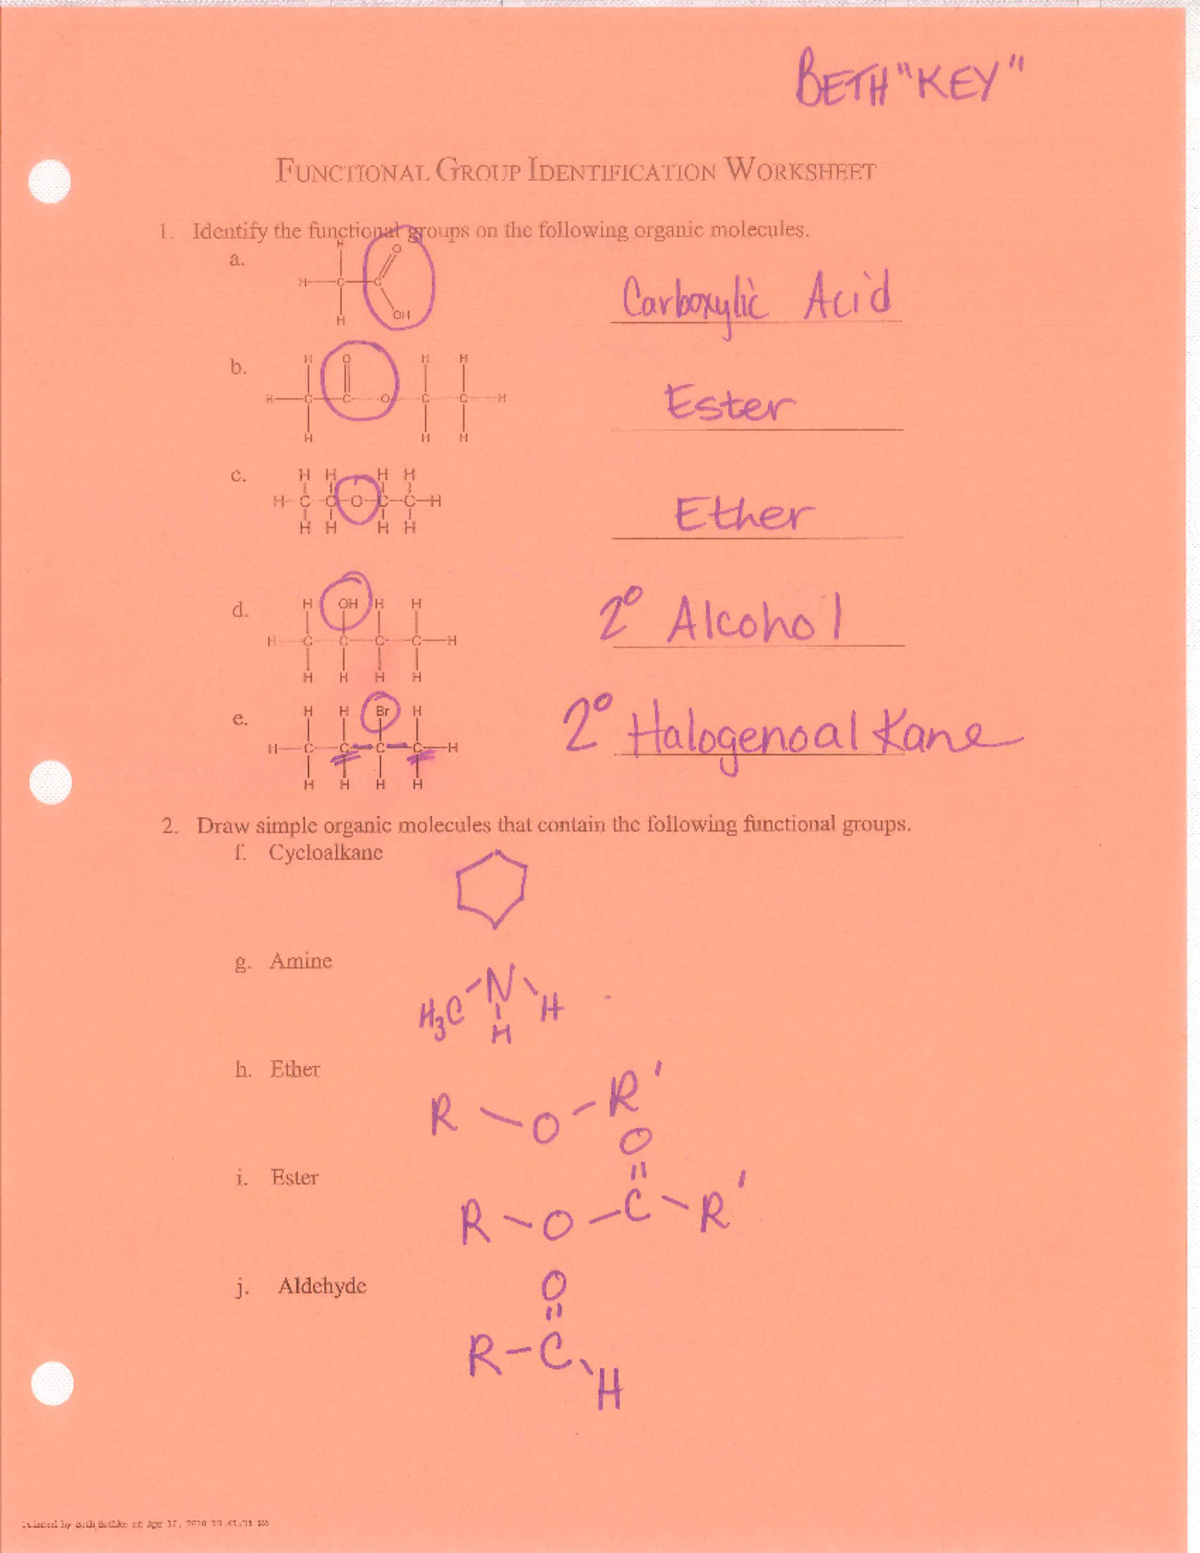 BETH "KEY"
FUNCTIONAL GROUP IDENTIFICATION WORKSHEET
1. Identify the functional groups on the following organic molecules.
a.
H O
H C C
H OH
Carboxylic Acid
b.
H O H H
H C C O C C H
H H H
Ester
c.
H H H H
H-C-C-O-C-C-H
H H H H
Ether
d.
H OH H H
H C C C C H
H H H H
2° Alcohol
e.
H H Br H
H C C C C H
H H H H
2° Halogenoalkane
2. Draw simple organic molecules that contain the following functional groups.
f. Cycloalkane
g. Amine
H3C-N-H
H
h. Ether
R-O-R'
i. Ester
O
R-O-C-R'
j. Aldehyde
O
R-C-H